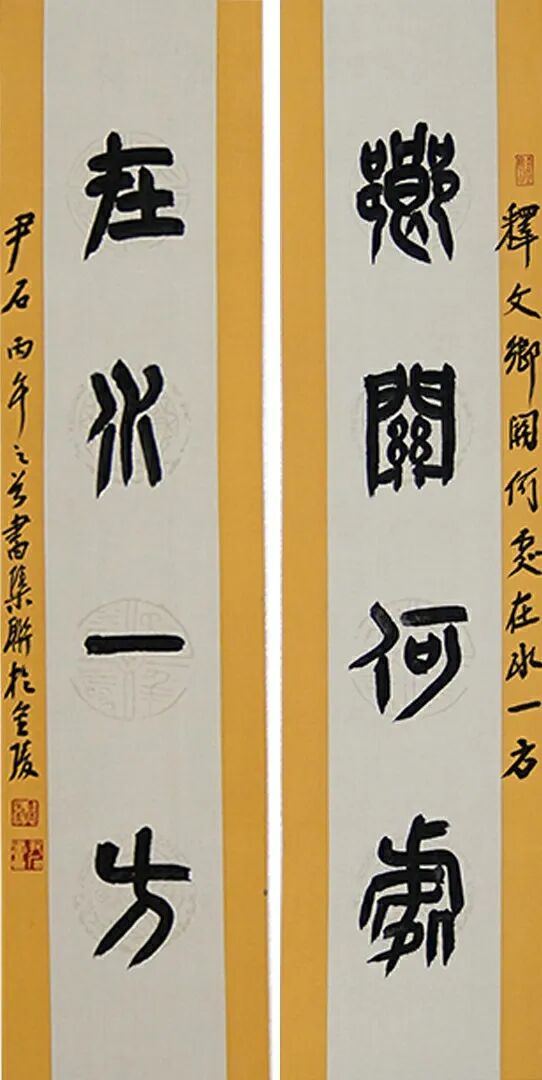 釋文鄉關何處在水一方
鄉關何處
在水一方
尹石丙午之首書集聯於金陵